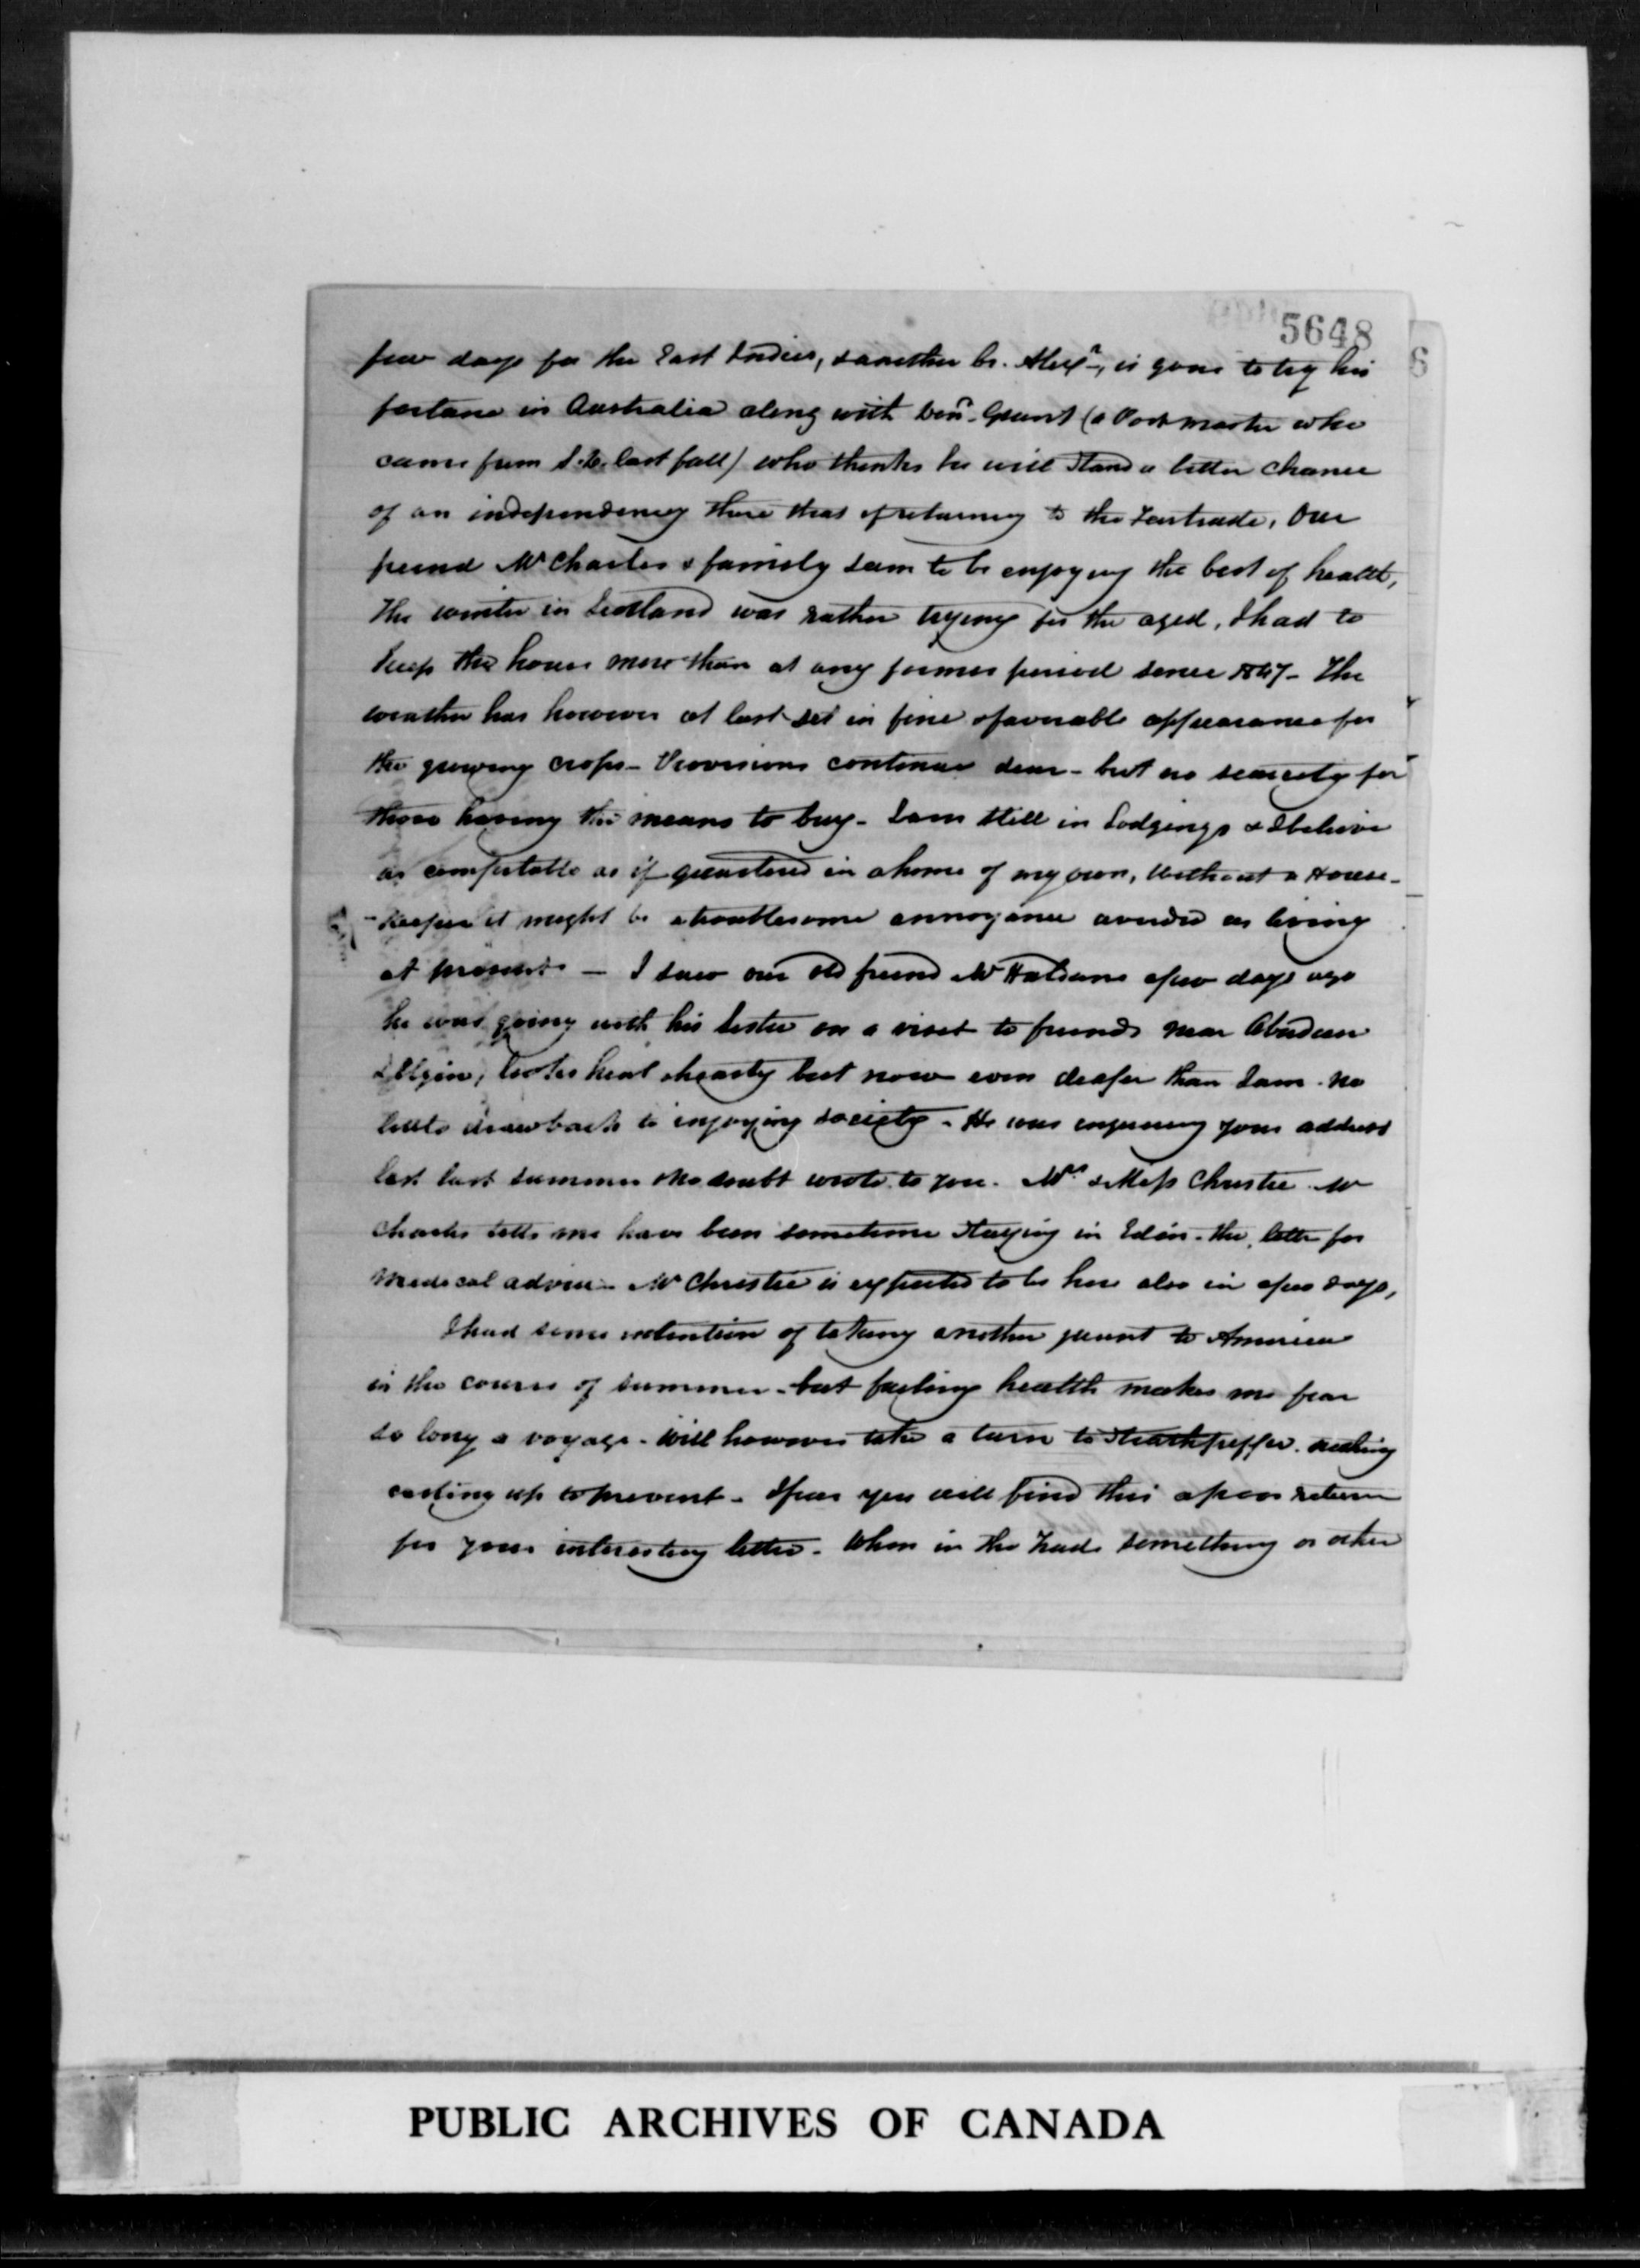 5648
few days for the East Indies, & another br. Alexr., is gone to try his
fortune in Australia along with Grant (a Postmaster who
came from last fall) who thinks he will stand a better chance
of an independency there than of returning to the Furtrade, Our
friend Mr Charles & family seem to be enjoying the best of health,
The winter in Scotland was rather trying for the aged, I had to
keep the house more than at any former period since 1847 - The
weather has however at last set in fine & favorable appearance for
the growing crops - Provisions continue dear - but no scarcity for
those having the means to buy - I am still in Lodgings & I believe
as comfortable as if quartered in a home of my own, Without a House-
-keeper it might be a troublesome annoyance avoided as living
at present - I saw our old friend Mr Haldane a few days ago
he was going with his Sister on a visit to friends near Aberdeen
& Elgin, looks heal & hearty but now even deafer than I am - no
little drawback to enjoying society - He was enquiring your address
last summer & no doubt wrote to you. Mrs & Miss Christie Mr
Charles tells me have been sometime staying in Edinr. the latter for
Medical advice - Mr Christie is expected to be here also in a few days,
I had some intention of taking another jaunt to America
in the course of summer - but failing health makes me fear
so long a voyage - Will however take a turn to Strathpeffer.
casting up to prevent - I fear you will find this a poor return
for your interesting letter - When in the Trade something or other
PUBLIC ARCHIVES OF CANADA